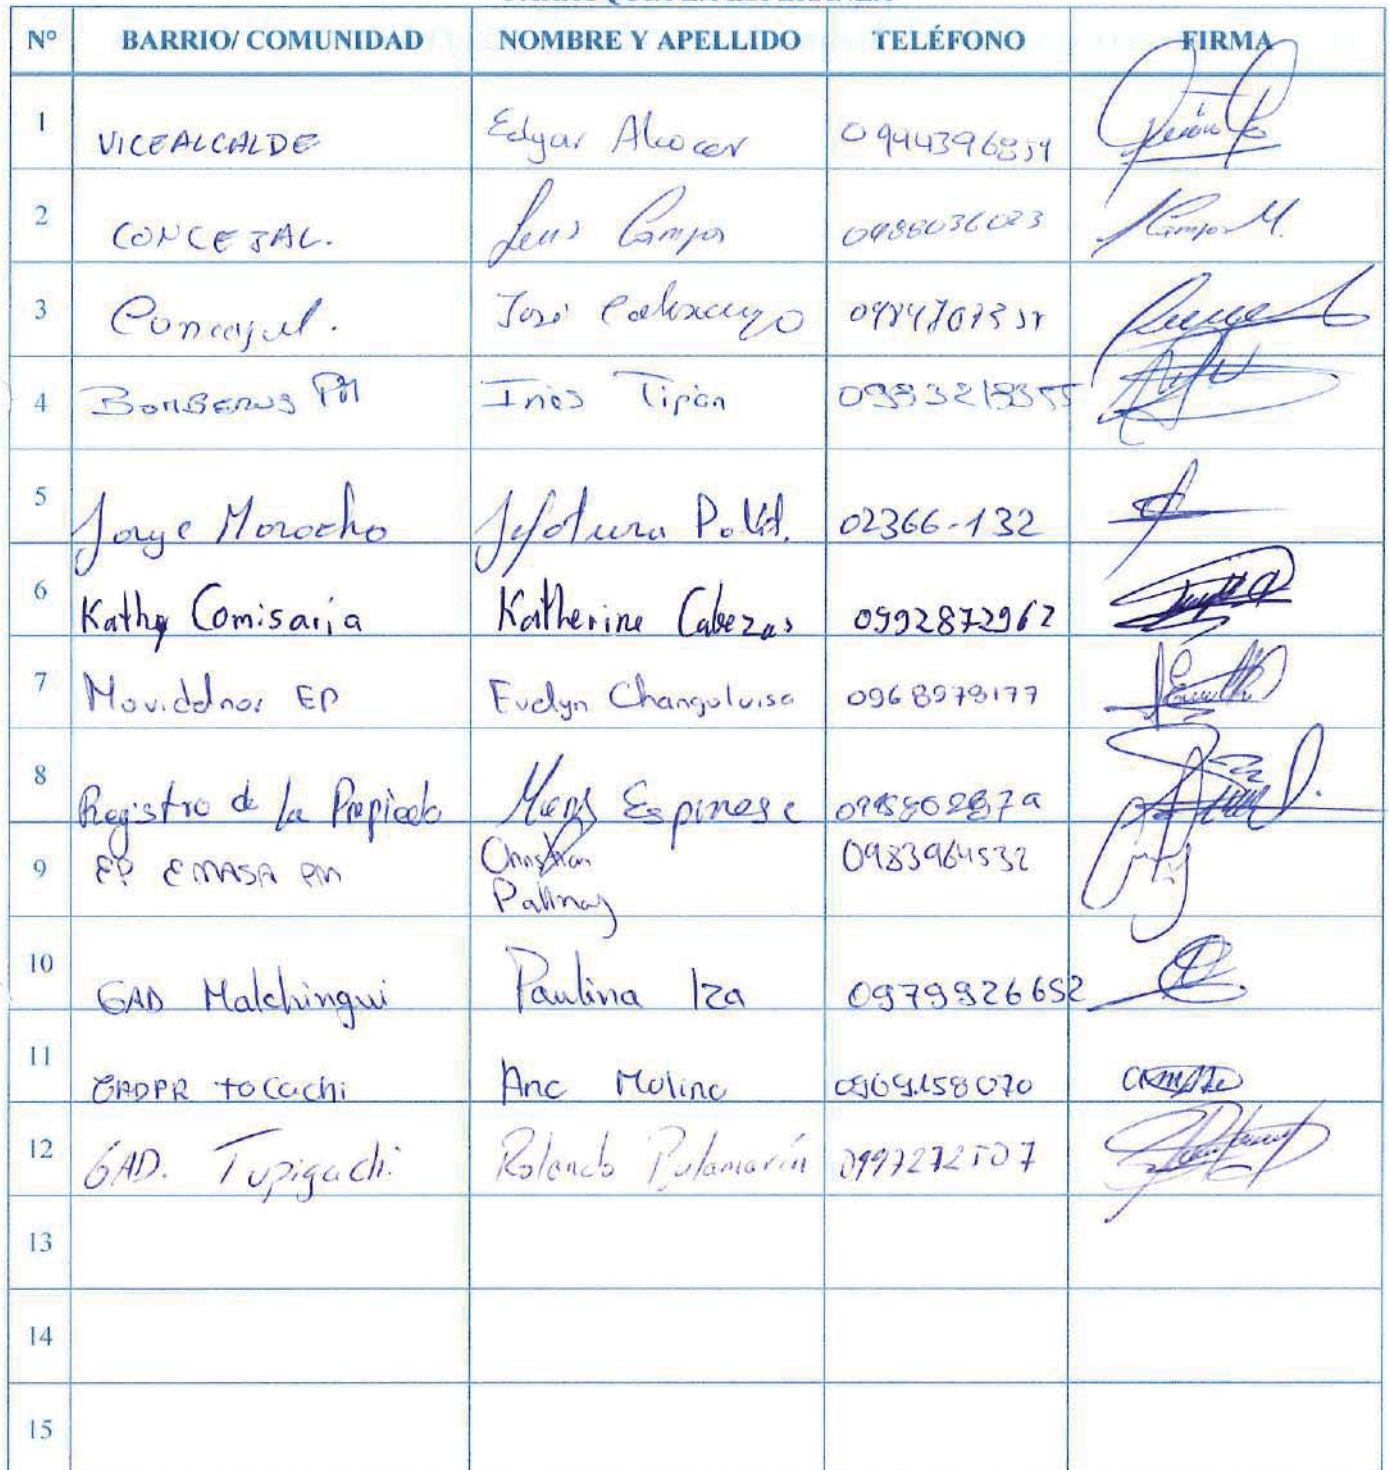 Nº BARRIO/ COMUNIDAD NOMBRE Y APELLIDO TELÉFONO FIRMA
1 VICEALCALDE Edgar Alcocer
2 CONCEJAL. Luis Campos
3 Concejal. José
4 BOMBEROS PM Inés Tipán
5 Jorge Morocho Jefatura Polit. 02366-132
6 Kathy Comisaria Katherine Cabezas 0992872962
7 Movidelnor EP Evelyn Changoluisa 0968979177
8 Registro de la Espinosa
9 EP EMASA PM Christian 0983964532
10 GAD Malchingui Paulina Iza 0979926652
11 GADPR tocachi Ana Molina 0969158070
12 GAD. Tupigachi. Rolando 0997272507
13
14
15